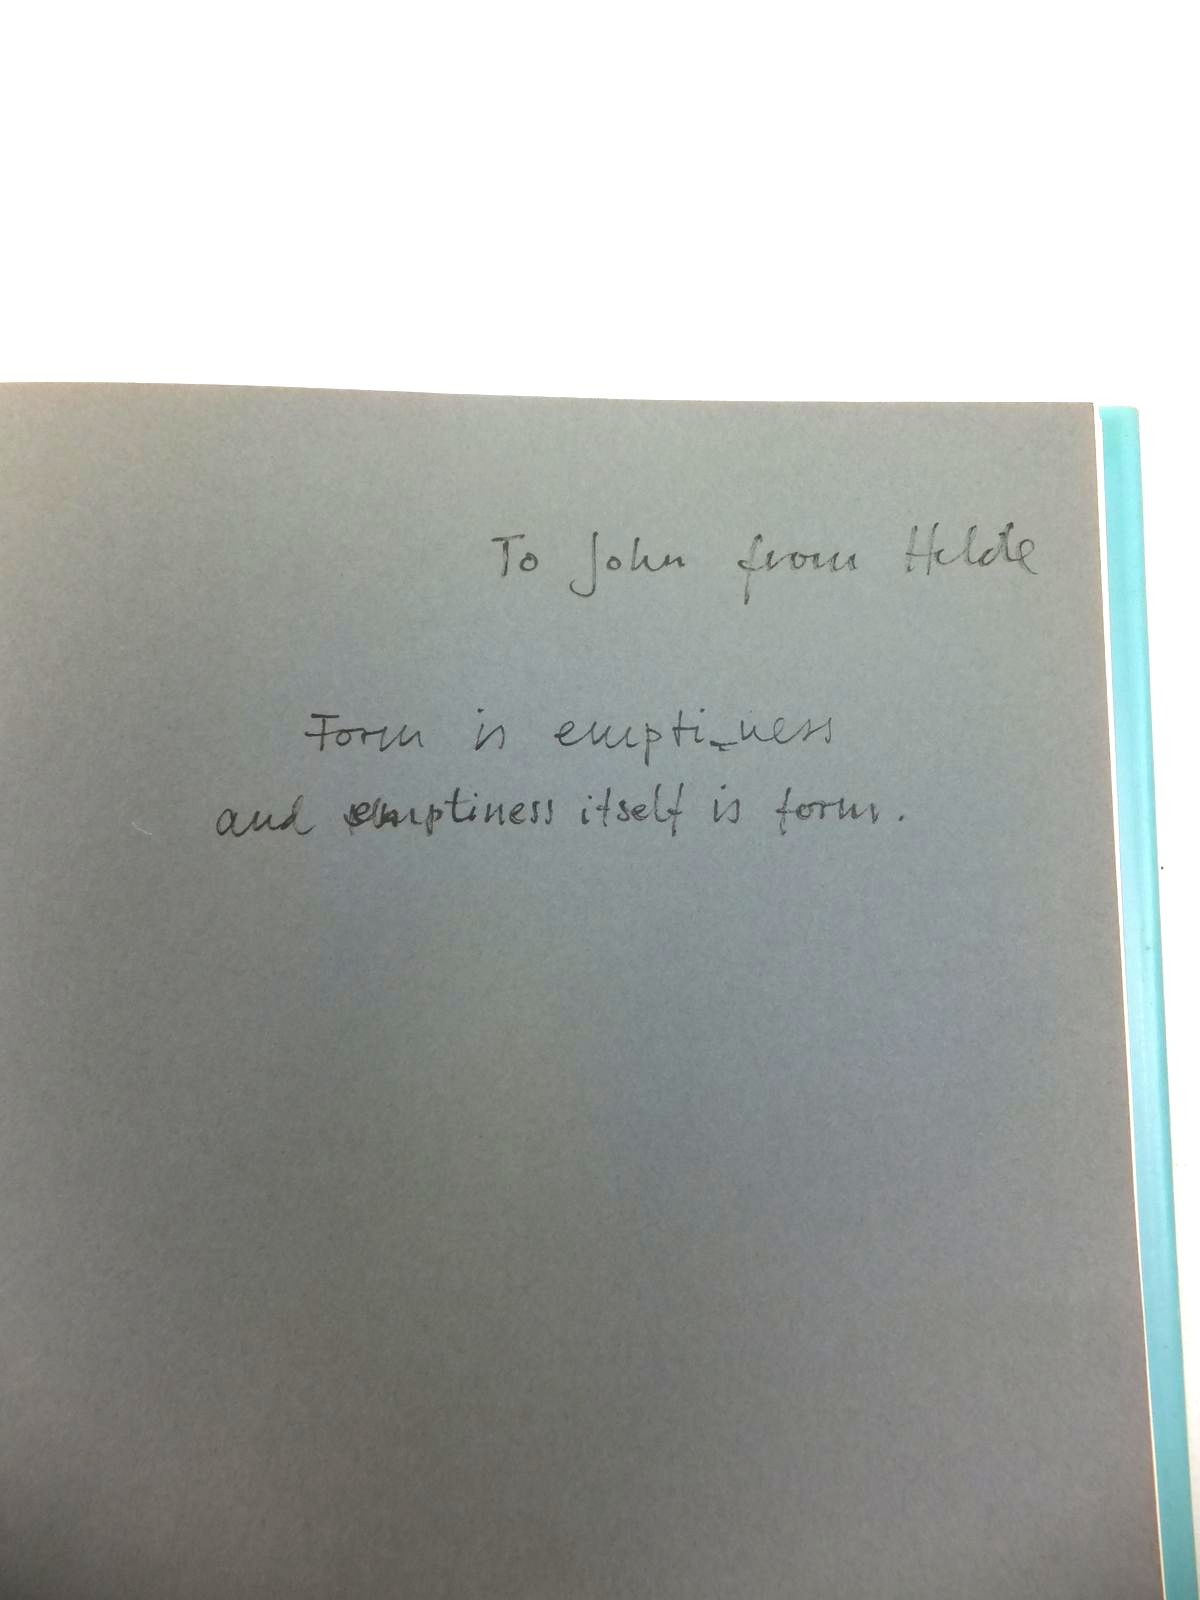 To John from Hilde
Form is empti-ness
and emptiness itself is form.